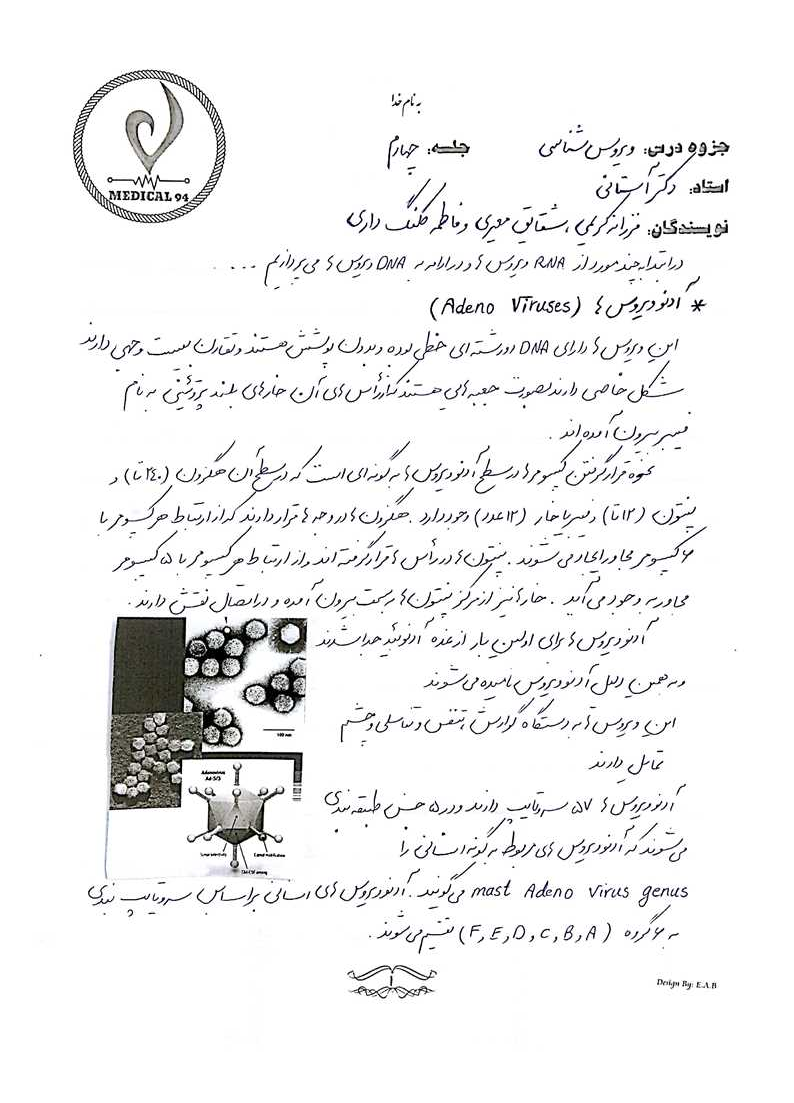 به نام خدا
MEDICAL 94
جزوه درس: ویروس شناسی جلسه: چهارم
استاد: دکتر آستانی
نویسندگان: فرزانه کریمی، شقایق معیری و فاطمه کلنگ داری
در ابتدا به چند مورد از RNA ویروس ها و در ادامه به DNA ویروس ها می پردازیم ....
* آدنو ویروس ها (Adeno Viruses)
این ویروس ها دارای DNA دو رشته ای خطی بوده و بدون پوشش هستند و تقارن بیست وجهی دارند
شکل خاصی دارند بصورت جعبه هایی هستند که از رأس های آن خارهای بلند پروتئینی به نام
فیبر بیرون آمده اند.
نحوه قرار گرفتن کپسومرها در سطح آدنو ویروس ها به گونه ای است که در سطح آن هگزون (۲۴۰ تا) و
پنتون (۱۲ تا) و فیبر یا خار (۱۲ عدد) وجود دارد. هگزون ها در وجه ها قرار دارند که از ارتباط هر کپسومر با
۶ کپسومر مجاور ایجاد می شوند. پنتون ها در رأس ها قرار گرفته اند و از ارتباط هر کپسومر با ۵ کپسومر
مجاور به وجود می آید. خارها نیز از مرکز پنتون ها به سمت بیرون آمده و در اتصال نقش دارند.
آدنو ویروس ها برای اولین بار از غده آدنوئید جدا شدند
و به همین دلیل آدنو ویروس نامیده می شوند
این ویروس ها به دستگاه گوارش، تنفس و تناسلی و چشم
تمایل دارند
آدنو ویروس ها ۵۷ سروتایپ دارند و در ۵ جنس طبقه بندی
می شوند که آدنو ویروس های مربوط به گونه انسانی را
mast Adeno virus genus می گویند. آدنو ویروس های انسانی براساس سروتایپ بندی
به ۶ گروه (F,E,D,C,B,A) تقسیم می شوند.
100 nm
Adenovirus
Ad-5/3
1
Design By: E.A.B